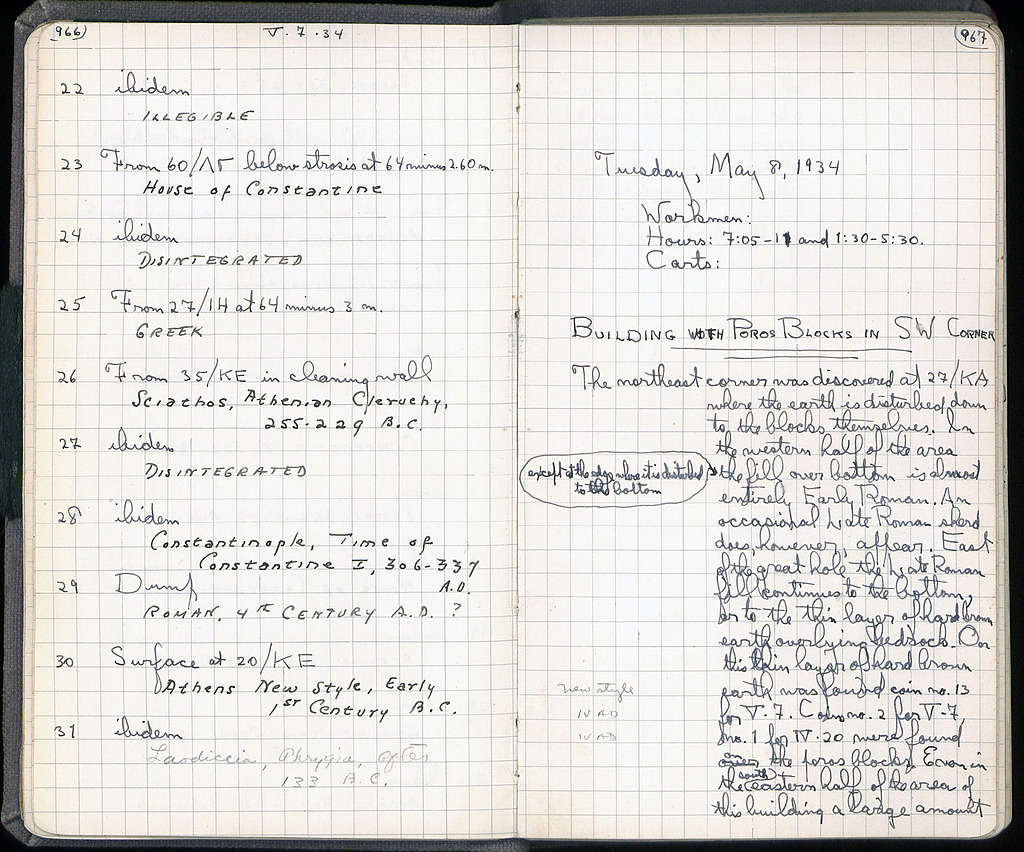 966
V. 7. 34
22 ibidem
ILLEGIBLE
23 From 60/ΛΓ below strosis at 64 minus 2.60 m.
House of Constantine
24 ibidem
DISINTEGRATED
25 From 27/ΙΗ at 64 minus 3 m.
GREEK
26 From 35/ΚΕ in cleaning wall
Sciathos, Athenian Cleruchy,
255-229 B.C.
27 ibidem
DISINTEGRATED
28 ibidem
Constantinople, Time of
Constantine I, 306-337
A.D.
29 Dump
ROMAN, 4TH CENTURY A.D. ?
30 Surface at 20/ΚΕ
Athens New Style, Early
1ST Century B.C.
31 ibidem
Laodiceia, Phrygia, after
133 B.C.
967
Tuesday, May 8, 1934
Workmen:
Hours: 7:05-11 and 1:30-5:30.
Carts:
BUILDING WITH POROS BLOCKS IN SW CORNER
The northeast corner was discovered at 27/ΚΑ
where the earth is disturbed down
to the blocks themselves. In
the western half of the area
except at the edge where it is disturbed
to the bottom
the fill over bottom is almost
entirely Early Roman. An
occasional Late Roman sherd
does, however, appear. East
of the great hole the Late Roman
fill continues to the bottom,
or to the thin layer of hard brown
earth overlying bedrock. On
this thin layer of hard brown
new style
earth was found coin no. 13
IV AD
for V-7. Coin no. 2 for V-7,
IV AD
no. 1 for IV-20 were found
on the poros blocks. Even in
the south eastern half of the area of
this building a large amount